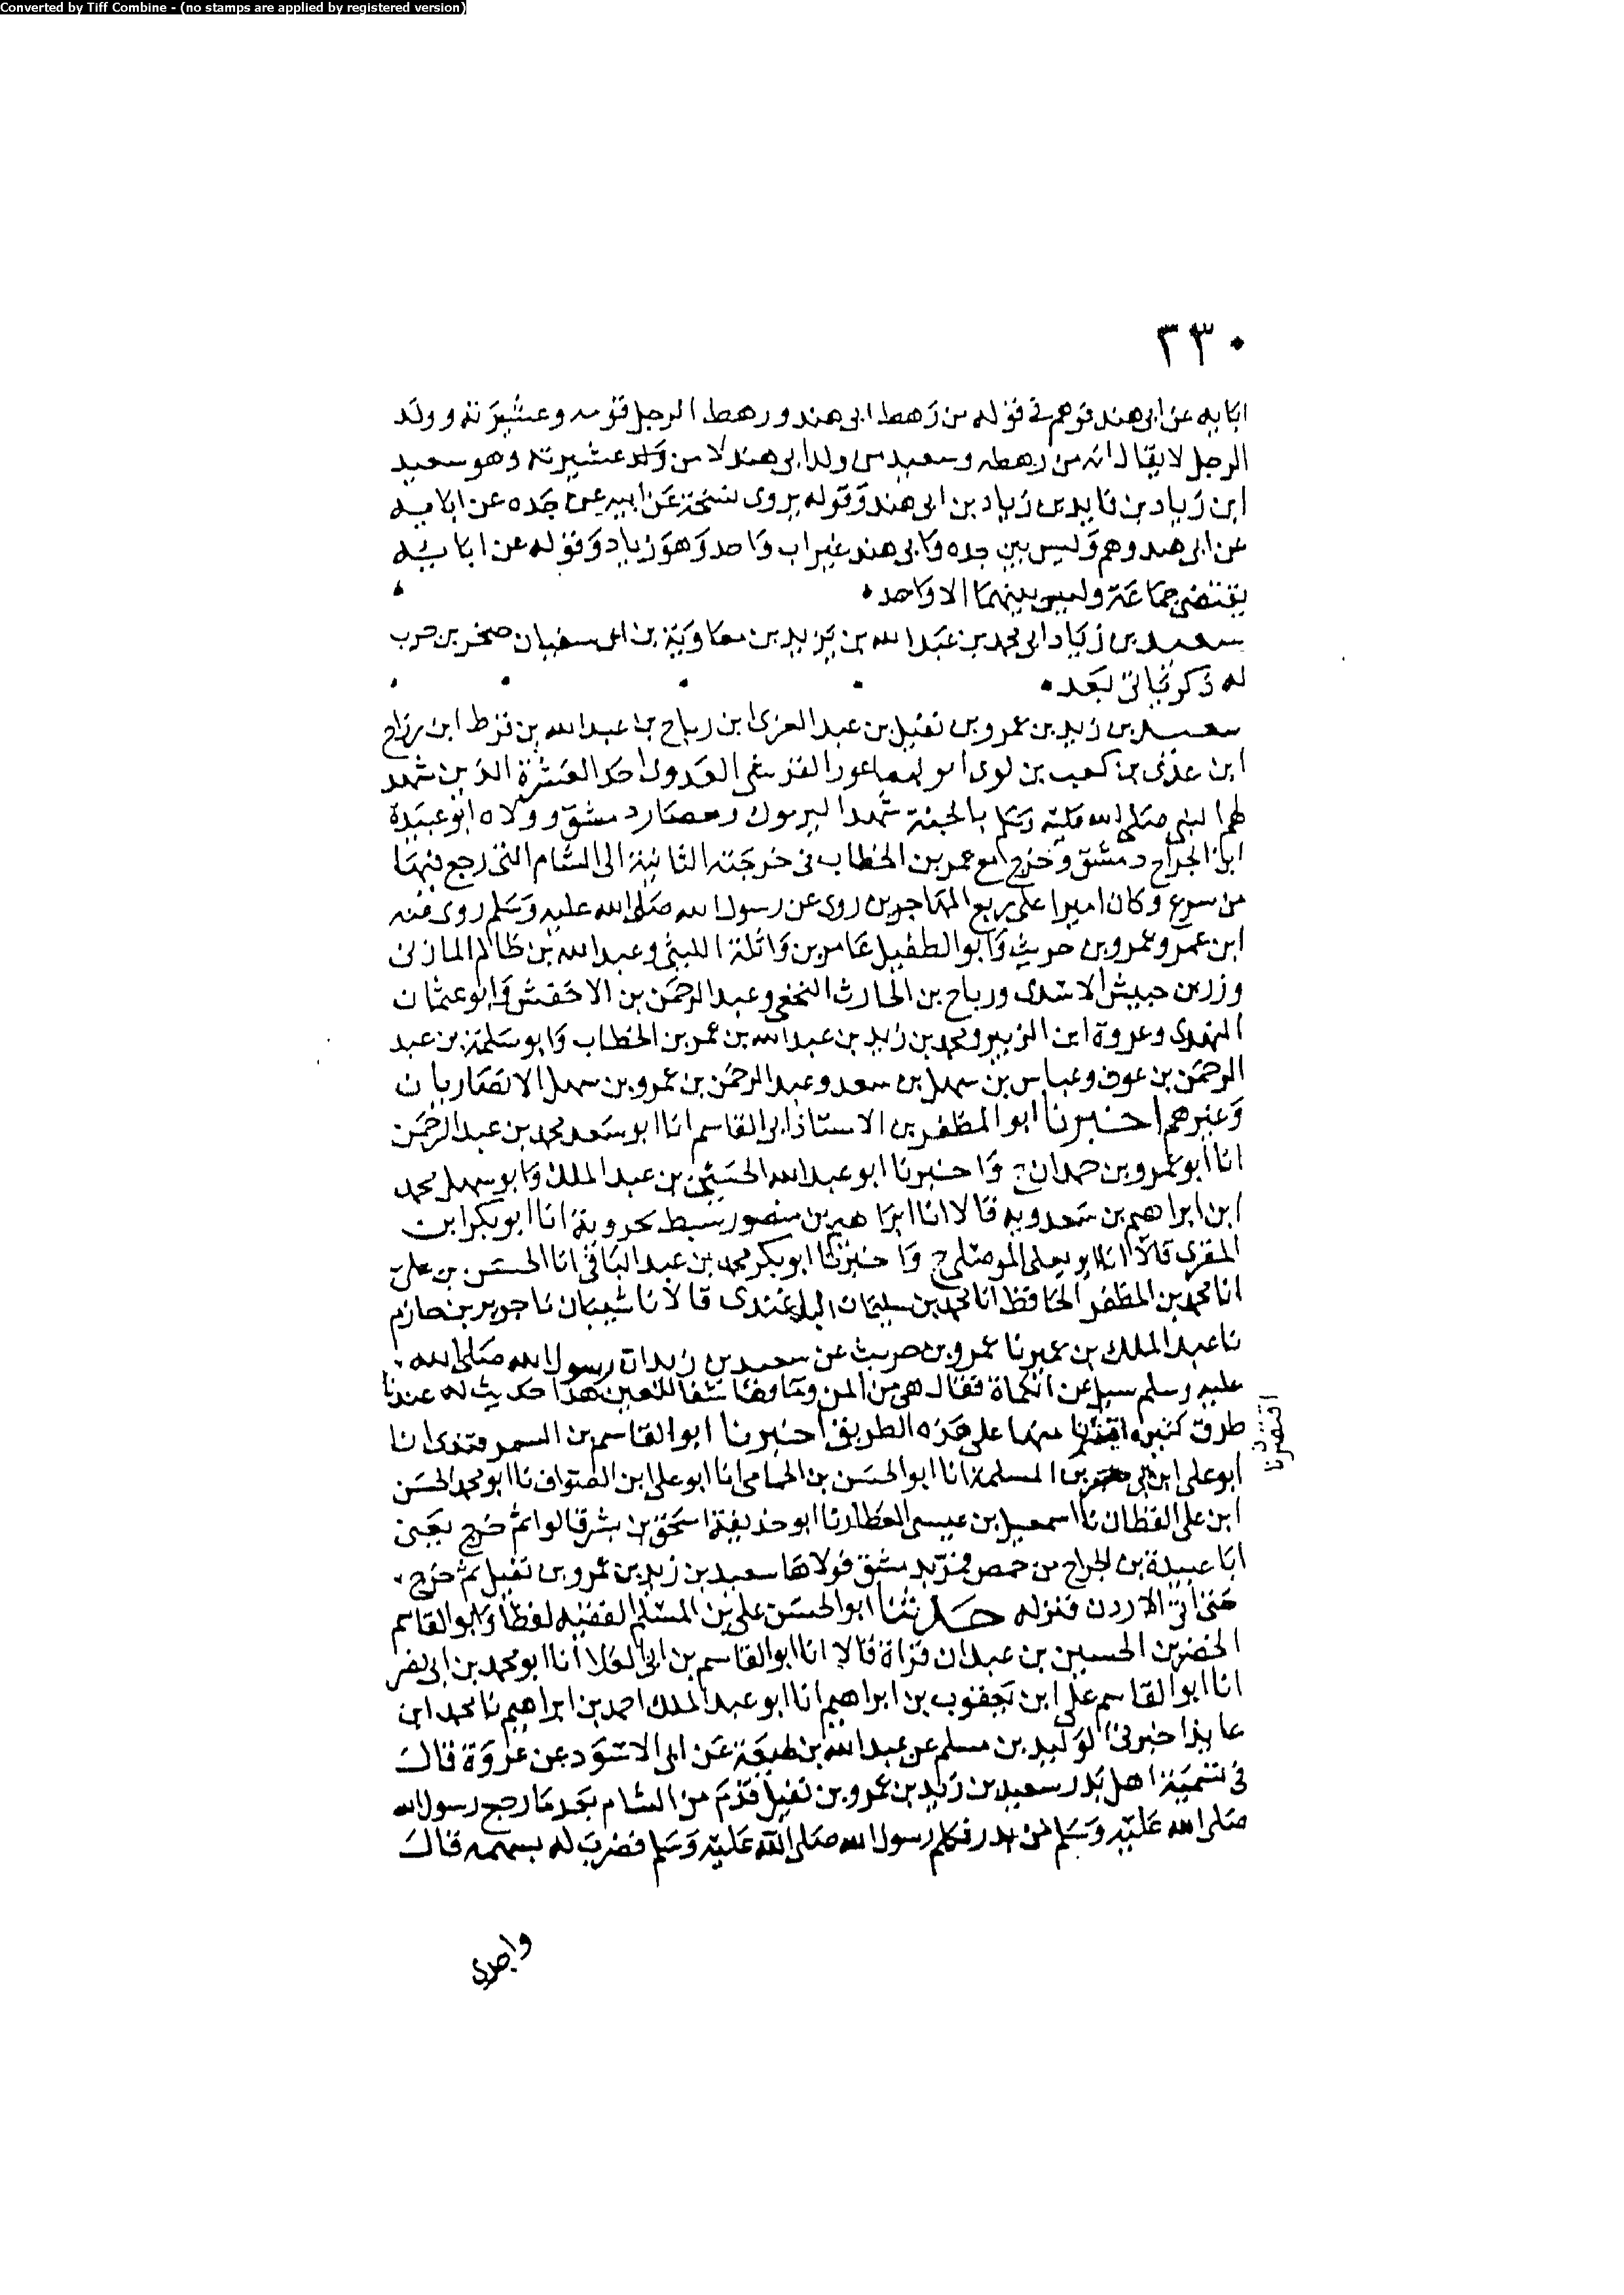 Converted by Tiff Combine - (no stamps are applied by registered version)
٣٣٠
ابايه عن ابي هند توهم في قوله من رهط ابي هند ورهط الرجل قومه وعشيرته وولد
الرجل لا يقال انه من رهطه وسعيد من ولد ابي هند لا من ولد عشيرته وهو سعيد
ابن زياد بن فايد بن زياد بن ابي هند وقوله يروى نسخة عن ابيه عن جده عن ابايه
عن ابي هند وهم وليس بين جده وابي هند غير اب واحد وهو زياد وقوله عن ابايه
يقتضى جماعة وليس بينهما الا واحد
سعيد بن زياد ابي محمد بن عبد الله بن يزيد بن معاوية بن ابي سفيان صخر بن حرب
له ذكر ياتي بعد
سعيد بن زيد بن عمرو بن نفيل بن عبد العزى ابن رياح بن عبد الله بن قرط ابن رزاح
ابن عدى بن كعب بن لوى ابو الاعور القرشى العدوى احد العشرة الذين شهد
لهم النبي صلى الله عليه وسلم بالجنة شهد اليرموك وحصار دمشق وولاه ابو عبيدة
ابن الجراح دمشق وخرج مع عمر بن الخطاب في خرجته الثانية الى الشام التي رجع فيها
من سرع وكان اميرا على ربع المهاجرين روى عن رسول الله صلى الله عليه وسلم روى عنه
ابن عمر وعمرو بن حريث وابو الطفيل عامر بن واثلة الليثي وعبد الله بن ظالم المازنى
وزر بن حبيش الاسدى ورياح بن الحارث النخعى وعبد الرحمن بن الاخفش وابو عثمان
النهدى وعروة ابن الزبير ومحمد بن زيد بن عبد الله بن عمر بن الخطاب وابو سلمة بن عبد
الرحمن بن عوف وعباس بن سهل بن سعد وعبد الرحمن بن عمرو بن سهل الانصاريان
وغيرهم اخبرنا ابو المظفر بن الاستاذ ابي القاسم انا ابو سعد محمد بن عبد الرحمن
انا ابو عمرو بن حمدان ح واخبرنا ابو عبد الله الحسين بن عبد الملك وابو سهل محمد
ابن ابراهيم بن سعدويه قالا انا ابراهيم بن منصور سبط بحرويه انا ابو بكر ابن
المقرى قالا انا ابو يعلى الموصلى ح واخبرنا ابو بكر محمد بن عبد الباقى انا الحسن بن على
انا محمد بن المظفر الحافظ انا محمد بن سليمان الباغندى قالا نا شيبان نا جرير بن حازم
نا عبد الملك بن عمير نا عمرو بن حريث عن سعيد بن زيد ان رسول الله صلى الله
عليه وسلم سيل عن الكماة فقال هي من المن وماوها شفا للعين هذا حديث له عندنا
طرق كثيرة اقتصرنا منها على هذه الطريق اخبرنا ابو القاسم بن السمرقندى انا
اقتصرنا
ابو على ابن ابي بن المسلمة انا ابو الحسن بن الحمامى انا ابو على ابن الصواف نا ابو محمد الحسن
ابن على القطان نا اسمعيل بن عيسى العطار نا ابو حذيفة اسحق بن بشر قالوا ثم خرج يعنى
ابا عبيدة بن الجراح من حمص فمر بدمشق فولاها سعيد بن زيد بن عمرو بن نفيل ثم خرج
حتى اتى الاردن فنزله حدثنا ابو الحسن على بن المسلم الفقيه لفظا وابو القاسم
الخضر بن الحسين بن عبدان قراة قالا انا ابو القاسم بن ابي العلا انا ابو محمد بن ابي نصر
انا ابو القاسم على ابن يعقوب بن ابراهيم انا ابو عبد الملك احمد بن ابراهيم نا محمد ابن
عايذ اخبرني الوليد بن مسلم عن عبد الله بن لهيعة عن ابي الاسود عن عروة قال
في تسمية اهل بدر سعيد بن زيد بن عمرو بن نفيل قدم من الشام بعد ما رجع رسول الله
صلى الله عليه وسلم من بدر فكلم رسول الله صلى الله عليه وسلم فضرب له بسهمه قال
واجرى